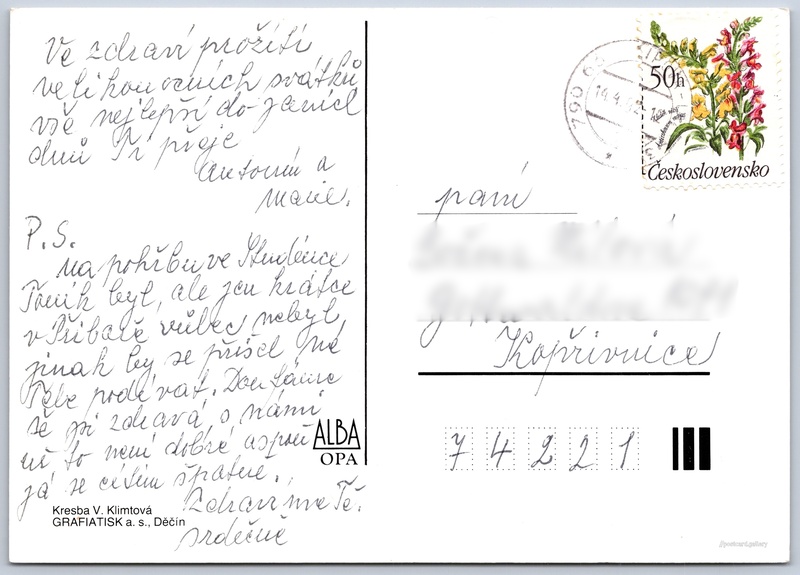 Ve zdraví prožití
velikonočních svátků
vše nejlepší do jarních
dnů Ti přeje
Antonín a
Marie.
P.S.
Na pohřbu ve Studénce
Toník byl, ale jen krátce
v Příboře vůbec nebyl,
jinak by se přišel na
Tebe podívat. Doufáme
že jsi zdravá, s námi
už to není dobré aspoň
já se cítím špatně.
Zdravíme Tě
srdečně
Kresba V. Klimtová
GRAFIATISK a. s., Děčín
ALBA
OPA
50h
Československo
paní
Kopřivnice
74221